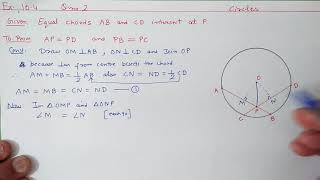 Ex. 10.4 Qno 2 Circles
Given: Equal chords AB and CD intersect at P
To Prove AP = PD and PB = PC
Const: Draw OM ⊥ AB, ON ⊥ CD and Join OP
because ⊥ar from centre bisects the chord
∴ AM = MB = 1/2 AB also CN = ND = 1/2 CD
AM = MB = CN = ND — ①
Now In △OMP and △ONP
∠M = ∠N [each 90]
O
M
N
A
D
P
C
B